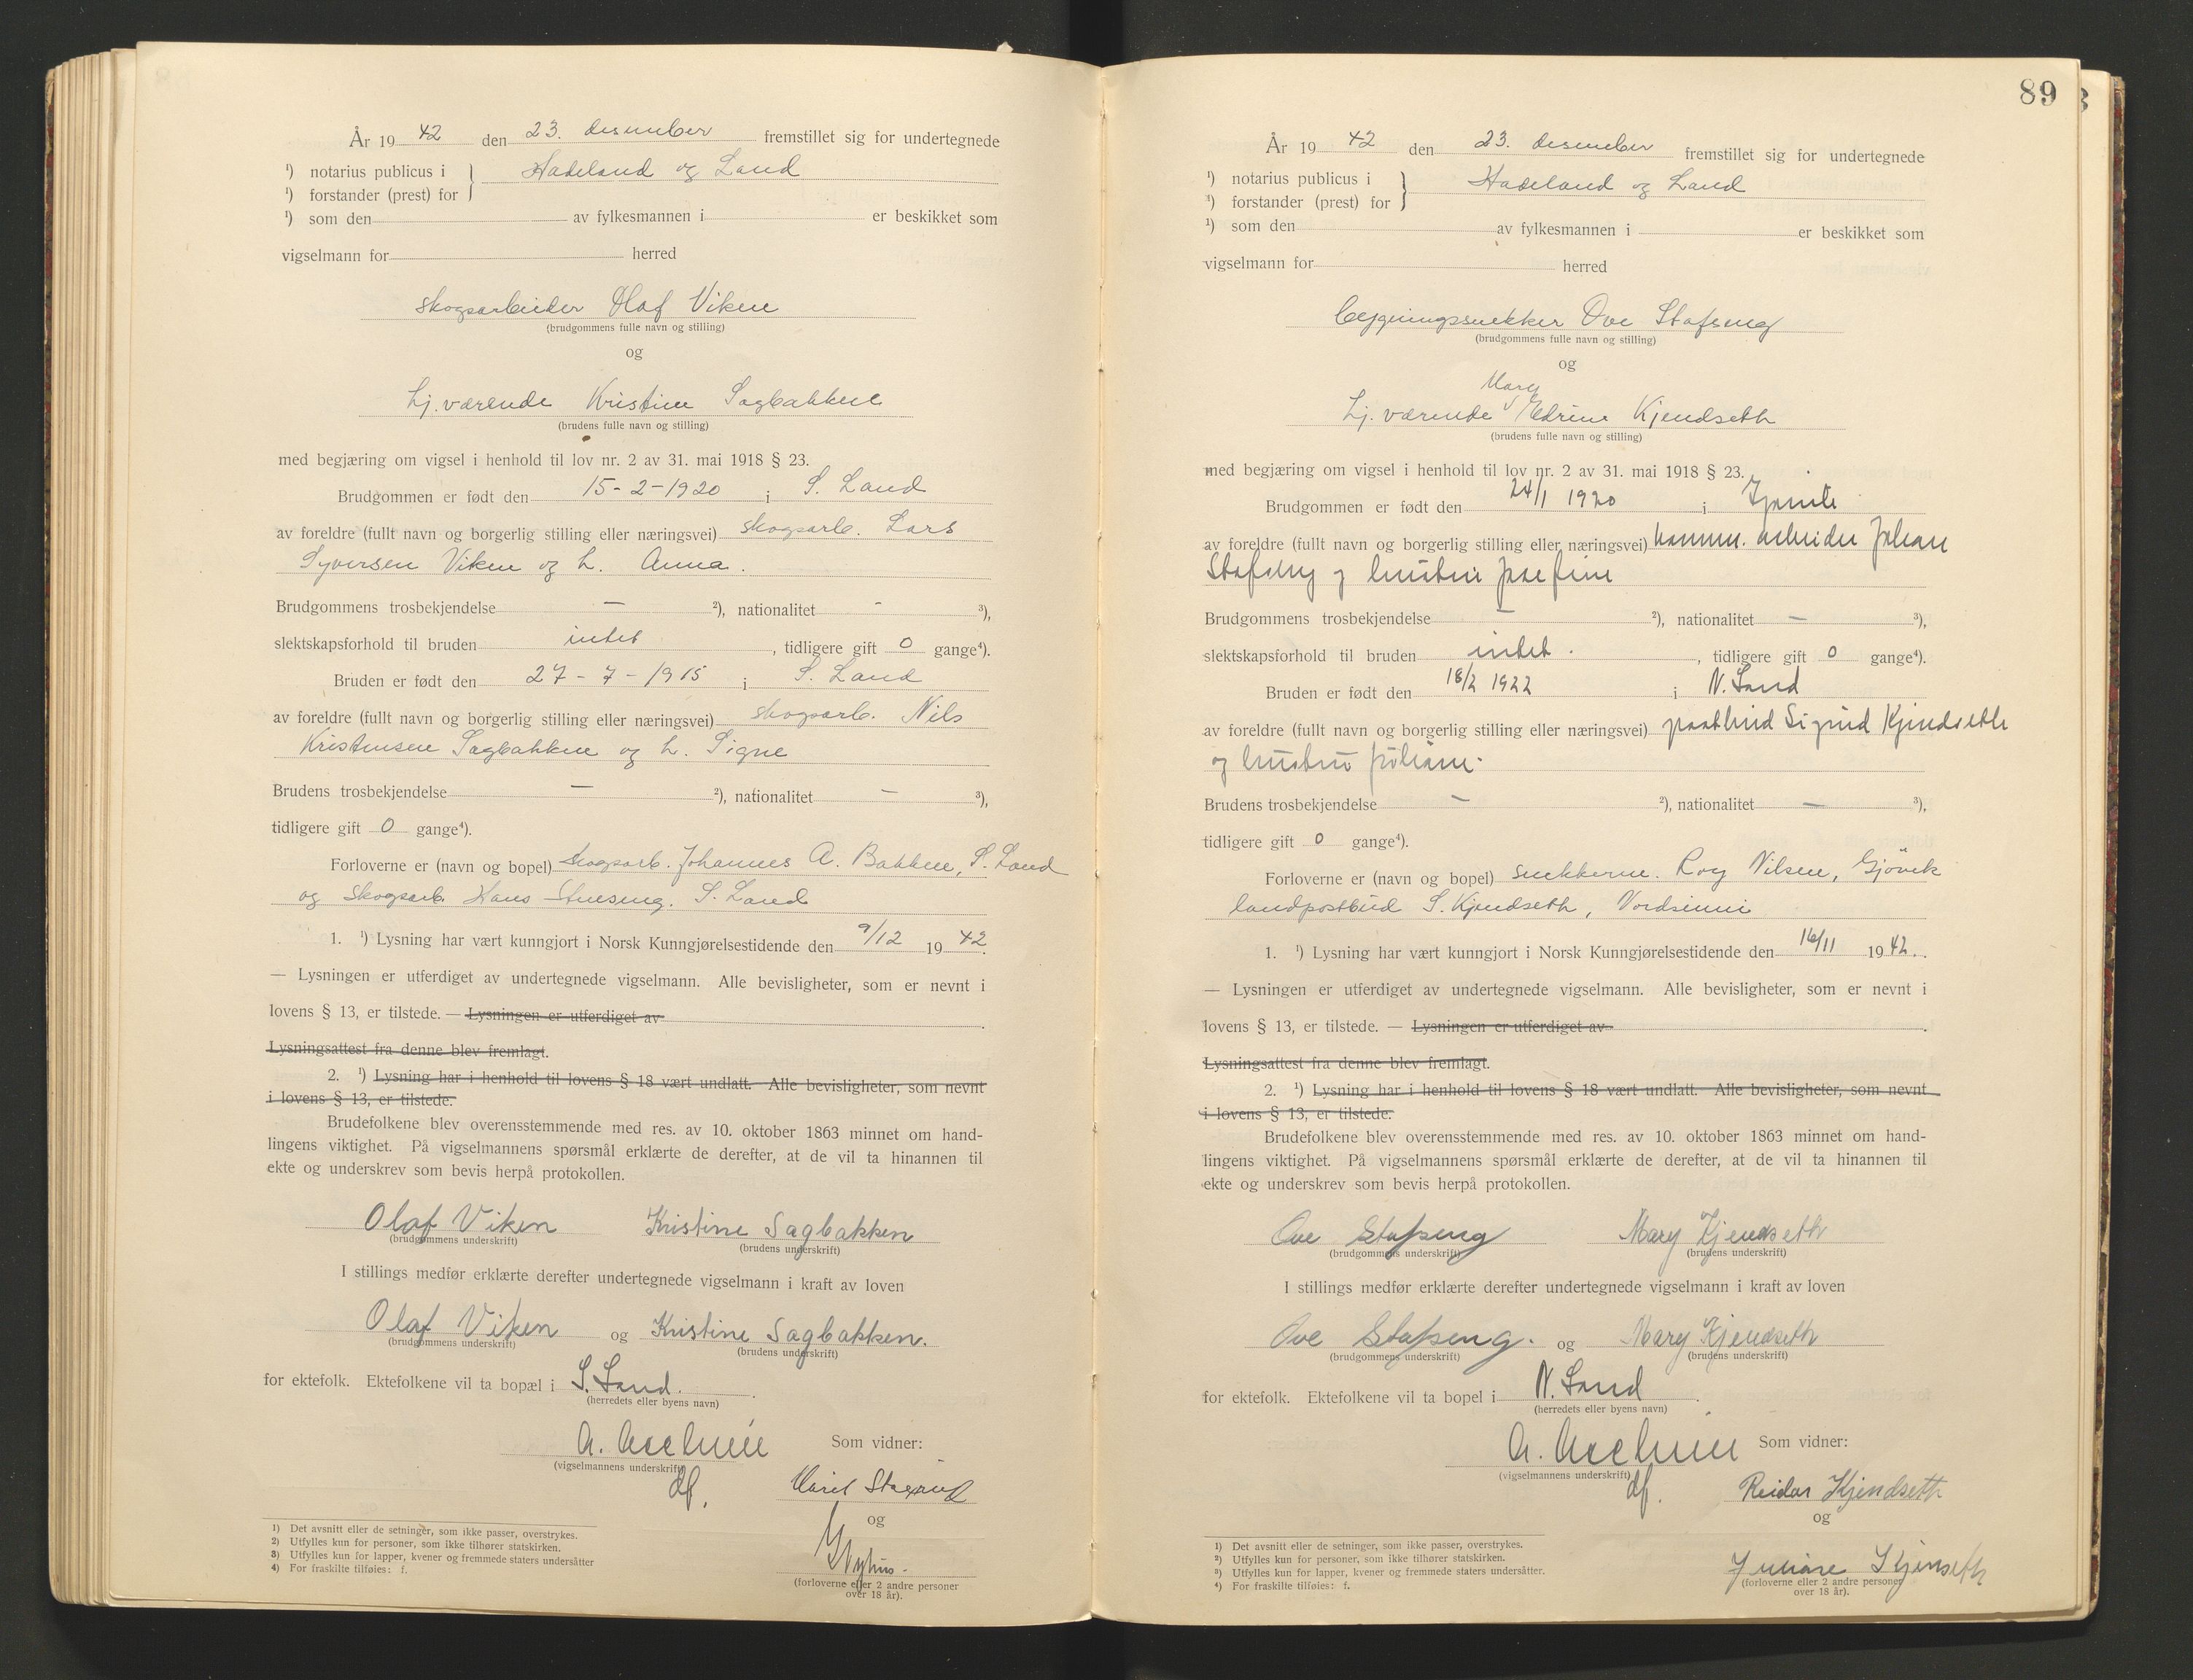 År 19 42 den 23. desember fremstillet sig for undertegnede
¹) notarius publicus i } Hadeland og Land
¹) forstander (prest) for
¹) som den av fylkesmannen i er beskikket som
vigselmann for herred
skogsarbeider Olaf Viken
(brudgommens fulle navn og stilling)
og
hj. værende Kristine Sagbakken
(brudens fulle navn og stilling)
med begjæring om vigsel i henhold til lov nr. 2 av 31. mai 1918 § 23.
Brudgommen er født den 15-2-1920 i S. Land
av foreldre (fullt navn og borgerlig stilling eller næringsvei) skogsarb. Lars
Syversen Viken og h. Anna.
Brudgommens trosbekjendelse — ²), nationalitet - ³),
slektskapsforhold til bruden intet, tidligere gift 0 gange⁴).
Bruden er født den 27-7-1915 i S. Land
av foreldre (fullt navn og borgerlig stilling eller næringsvei) skogsarb. Nils
Kristensen Sagbakken og h. Signe
Brudens trosbekjendelse — ²), nationalitet — ³),
tidligere gift 0 gange⁴).
Forloverne er (navn og bopel) skogsarb. Johannes A. Bakken, S. Land
og skogsarb. Hans S. Land
1. ¹) Lysning har vært kunngjort i Norsk Kunngjørelsestidende den 9/12 19 42.
— Lysningen er utferdiget av undertegnede vigselmann. Alle bevisligheter, som er nevnt i
lovens § 13, er tilstede. — Lysningen er utferdiget av
Lysningsattest fra denne blev fremlagt.
2. ¹) Lysning har i henhold til lovens § 18 vært undlatt. Alle bevisligheter, som nevnt
i lovens § 13, er tilstede.
Brudefolkene blev overensstemmende med res. av 10. oktober 1863 minnet om hand-
lingens viktighet. På vigselmannens spørsmål erklærte de derefter, at de vil ta hinannen til
ekte og underskrev som bevis herpå protokollen.
Olaf Viken Kristine Sagbakken
(brudgommens underskrift) (brudens underskrift)
I stillings medfør erklærte derefter undertegnede vigselmann i kraft av loven
Olaf Viken og Kristine Sagbakken.
(brudgommens underskrift) (brudens underskrift)
for ektefolk. Ektefolkene vil ta bopæl i S. Land.
(herredets eller byens navn)
A. Som vidner:
(vigselmannens underskrift)
df.
og
(forloverne eller 2 andre personer
over 18 år).
1) Det avsnitt eller de setninger, som ikke passer, overstrykes.
2) Utfylles kun for personer, som ikke tilhører statskirken.
3) Utfylles kun for lapper, kvener og fremmede staters undersåtter
4) For fraskilte tilføies: f.
89
År 19 42 den 23. desember fremstillet sig for undertegnede
¹) notarius publicus i } Hadeland og Land
¹) forstander (prest) for
¹) som den av fylkesmannen i er beskikket som
vigselmann for herred
bygningssnekker Ove Stafseng
(brudgommens fulle navn og stilling)
og
Mary
hj. værende Edrine Kjendseth
(brudens fulle navn og stilling)
med begjæring om vigsel i henhold til lov nr. 2 av 31. mai 1918 § 23.
Brudgommen er født den 24/1 1920 i
av foreldre (fullt navn og borgerlig stilling eller næringsvei) komm. arbeider Johan
Stafseng og hustru Josefine
Brudgommens trosbekjendelse — ²), nationalitet — ³),
slektskapsforhold til bruden intet., tidligere gift 0 gange⁴).
Bruden er født den 18/2 1922 i N. Land
av foreldre (fullt navn og borgerlig stilling eller næringsvei) postbud Sigurd Kjendseth
og hustru Juliane.
Brudens trosbekjendelse — ²), nationalitet — ³),
tidligere gift 0 gange⁴).
Forloverne er (navn og bopel) snekkerne. Roy Nilsen, Gjövik
landpostbud S. Kjendseth, Nordsinni
1. ¹) Lysning har vært kunngjort i Norsk Kunngjørelsestidende den 16/11 19 42.
— Lysningen er utferdiget av undertegnede vigselmann. Alle bevisligheter, som er nevnt i
lovens § 13, er tilstede. — Lysningen er utferdiget av
Lysningsattest fra denne blev fremlagt.
2. ¹) Lysning har i henhold til lovens § 18 vært undlatt. Alle bevisligheter, som nevnt
i lovens § 13, er tilstede.
Brudefolkene blev overensstemmende med res. av 10. oktober 1863 minnet om hand-
lingens viktighet. På vigselmannens spørsmål erklærte de derefter, at de vil ta hinannen til
ekte og underskrev som bevis herpå protokollen.
Ove Stafseng Mary Kjendseth
(brudgommens underskrift) (brudens underskrift)
I stillings medfør erklærte derefter undertegnede vigselmann i kraft av loven
Ove Stafseng. og Mary Kjendseth
(brudgommens underskrift) (brudens underskrift)
for ektefolk. Ektefolkene vil ta bopel i N. Land
(herredets eller byens navn)
A. Som vidner:
(vigselmannens underskrift)
df.
Reidar Kjendseth
og
Juliane Kjenseth
(forloverne eller 2 andre personer
over 18 år).
1) Det avsnitt eller de setninger, som ikke passer, overstrykes.
2) Utfylles kun for personer, som ikke tilhører statskirken.
3) Utfylles kun for lapper, kvener og fremmede staters undersåtter.
4) For fraskilte tilføies: f.